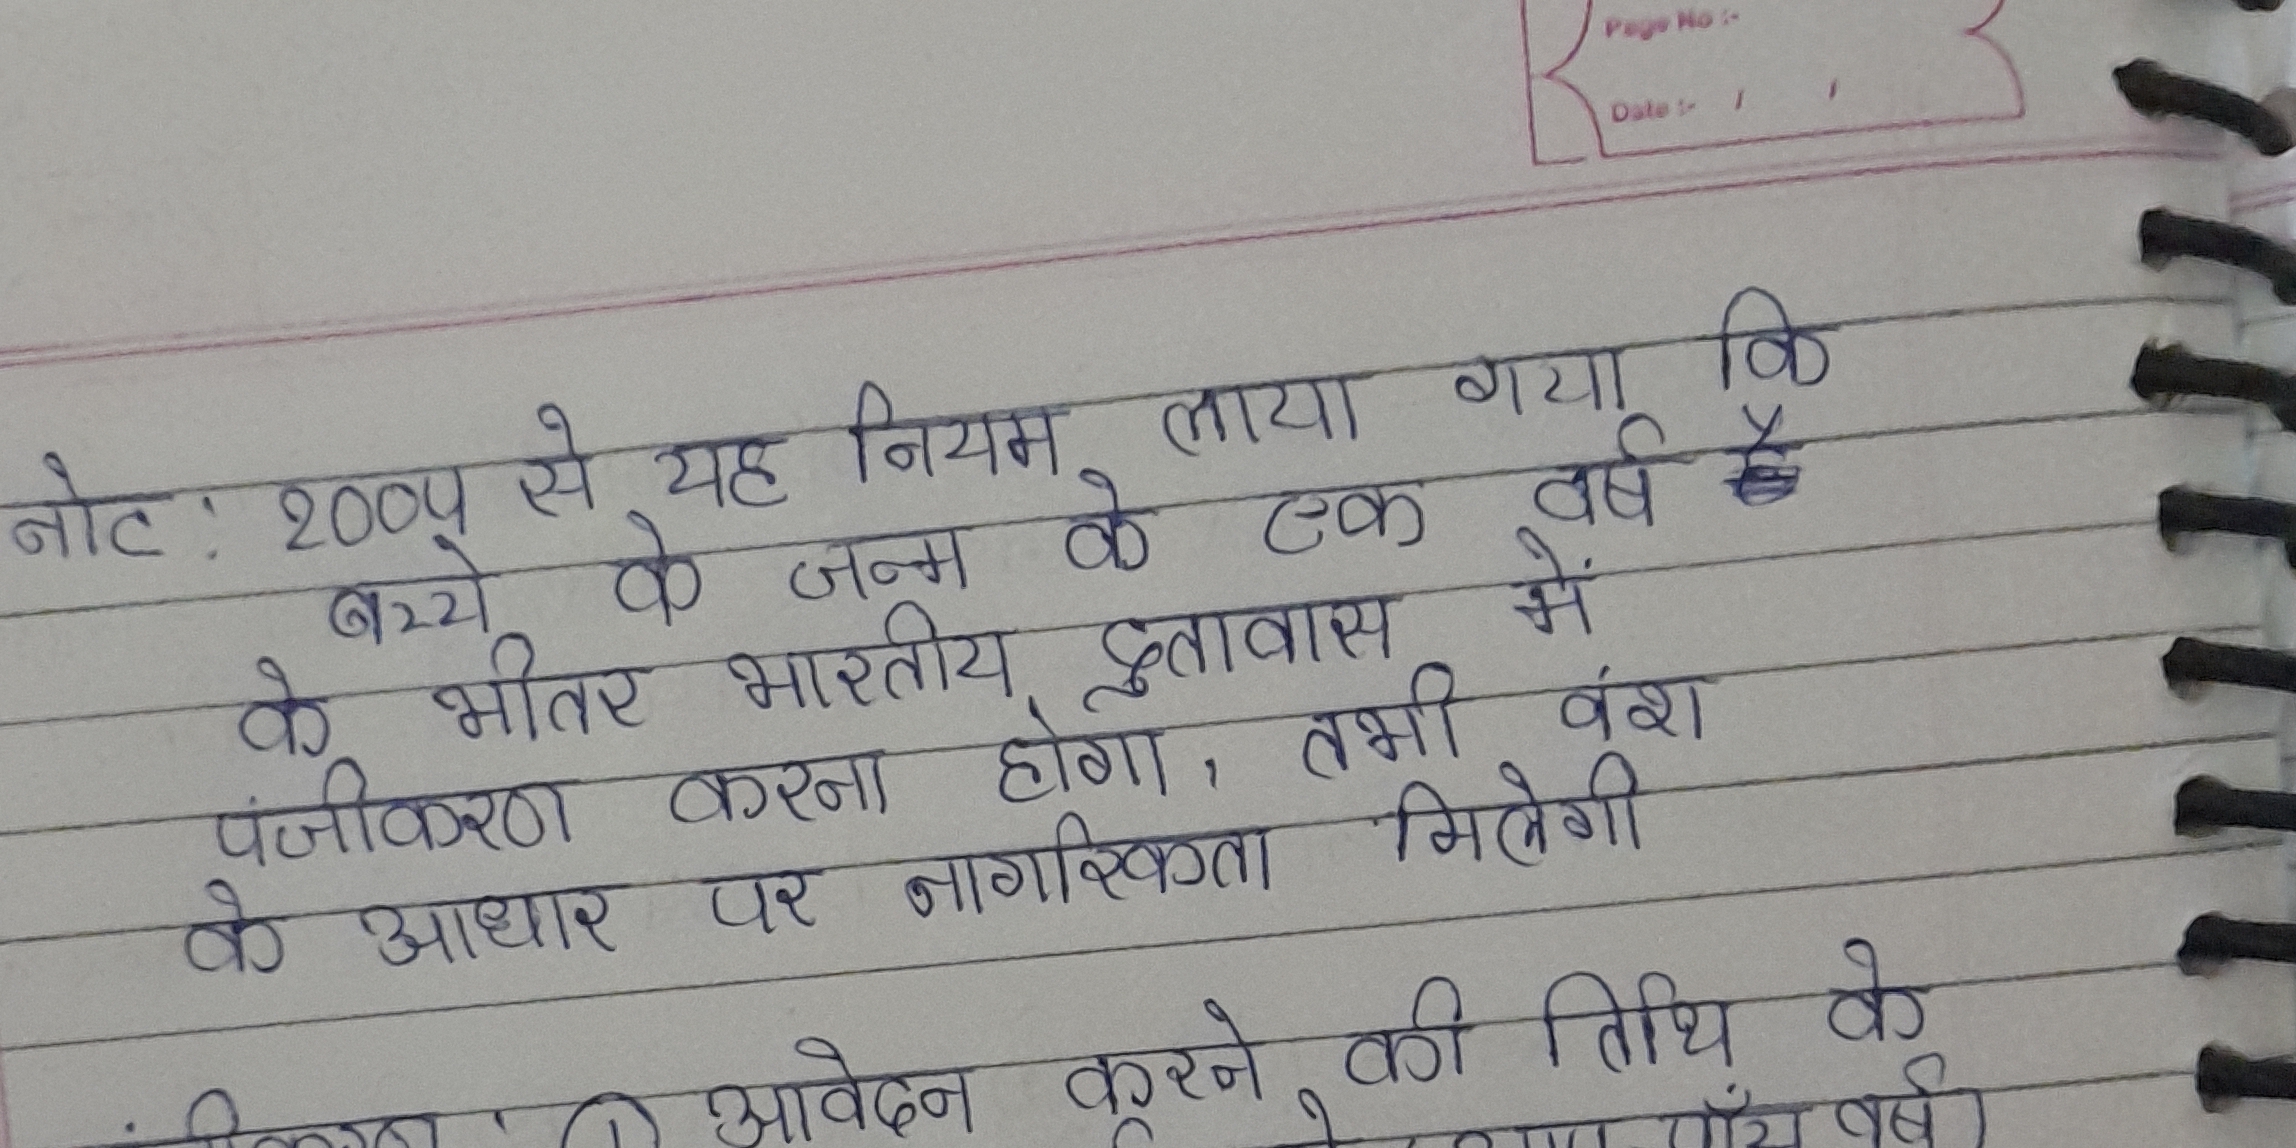 Page No :-
Date :- / /
नोट : 2004 से यह नियम लाया गया कि
बच्चे के जन्म के एक वर्ष
के भीतर भारतीय दुतावास में
पंजीकरण करना होगा, तभी वंश
के आधार पर नागरिकता मिलेगी
① आवेदन करने की तिथि के
पाँच वर्ष